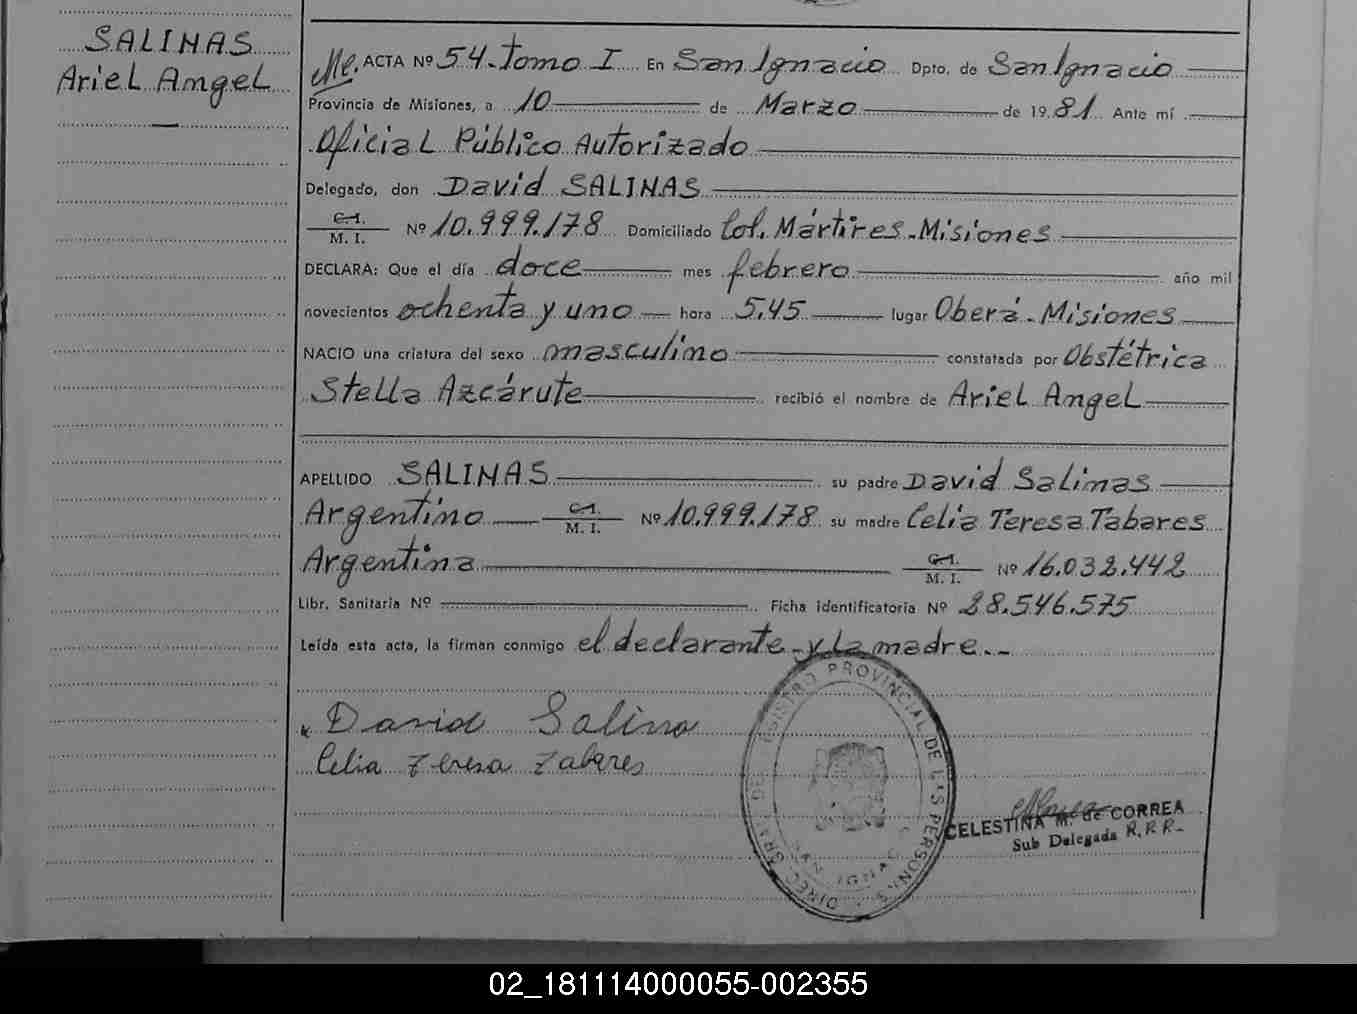 SALINAS
Ariel Angel
ACTA Nº 54-Tomo I En San Ignacio Dpto. de San Ignacio
Provincia de Misiones, a 10 de Marzo de 1981 Ante mí
Oficial Público Autorizado
Delegado, don David SALINAS
C.I.
M. I. Nº 10.999.178 Domiciliado Col. Mártires-Misiones
DECLARA: Que el día doce mes febrero año mil
novecientos ochenta y uno hora 5,45 lugar Oberá-Misiones
NACIO una criatura del sexo masculino constatada por Obstétrica
Stella Azcárute recibió el nombre de Ariel Angel
APELLIDO SALINAS su padre David Salinas
Argentino C.I. M. I. Nº 10.999.178 su madre Celia Teresa Tabares
Argentina C.I. M. I. Nº 16.032.442
Libr. Sanitaria Nº Ficha identificatoria Nº 28.546.575
Leída esta acta, la firman conmigo el declarante y la madre.-
David Salina
Celia Teresa Tabares
REGISTRO PROVINCIAL DE LAS PERSONAS
SAN IGNACIO
CELESTINA M. de CORREA
Sub Delegada R.P.P.
02_181114000055-002355